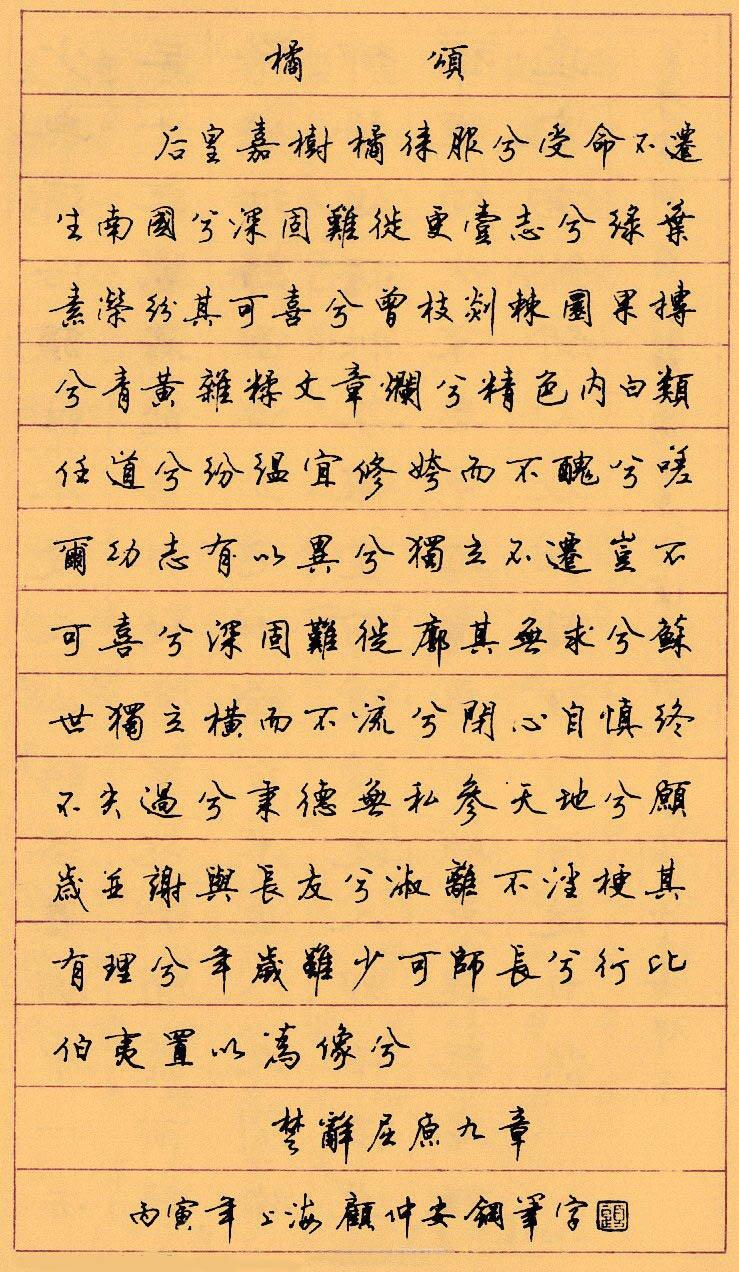 橘頌
后皇嘉樹橘徠服兮受命不遷
生南國兮深固難徙更壹志兮綠葉
素榮紛其可喜兮曾枝剡棘圜果摶
兮青黃雜糅文章爛兮精色內白類
任道兮紛縕宜修姱而不醜兮嗟
爾幼志有以異兮獨立不遷豈不
可喜兮深固難徙廓其無求兮蘇
世獨立橫而不流兮閉心自慎終
不失過兮秉德無私參天地兮願
歲並謝與長友兮淑離不淫梗其
有理兮年歲雖少可師長兮行比
伯夷置以為像兮
楚辭屈原九章
丙寅年上海顧仲安鋼筆字